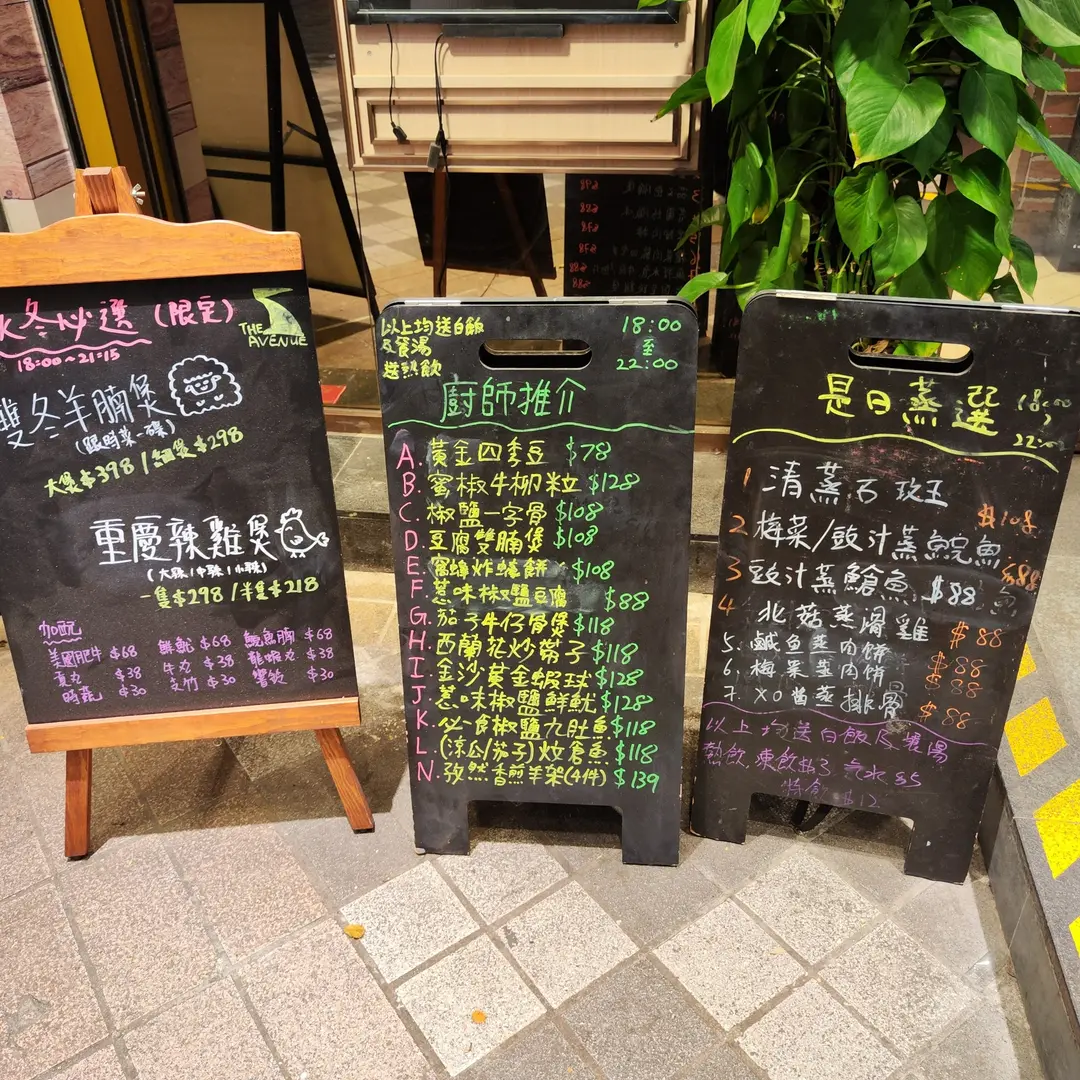 冬必選(限定)
THE AVENUE
18:00~21:15
雙冬羊腩煲
大煲$398/細煲$298
重慶辣雞煲
(大辣/中辣/小辣)
一隻$298/半隻$218
加配
美國肥牛 $68 鮮魷 $68 鯇魚腩 $68
$38 牛丸 $38 龍蝦丸 $38
$30 支竹 $30 響鈴 $30
以上均送白飯
及餐湯
送熱飲
18:00
至
22:00
廚師推介
A. 黃金四季豆 $78
B. 蜜椒牛柳粒 $128
C. 椒鹽一字骨 $108
D. 豆腐雙腩煲 $108
E. 炸蠔餅 $108
F. 惹味椒鹽豆腐 $88
G. 茄子牛仔骨煲 $118
H. 西蘭花炒帶子 $118
I. 金沙黃金蝦球 $128
J. 惹味椒鹽鮮魷 $128
K. 必食椒鹽九肚魚 $118
L. (涼瓜/茄子)炆倉魚 $118
N. 孜然香煎羊架(4件) $139
是日蒸選
18:00
22:00
1 清蒸石斑 $108
2 梅菜/豉汁蒸鯇魚 $88
3 豉汁蒸鯧魚 $88
4 北菇蒸滑雞 $88
5. 鹹魚蒸肉餅 $88
6. 梅菜蒸肉餅 $88
7. XO醬蒸排骨 $88
以上均送白飯及餐湯
熱飲. 凍飲 汽水 $5
$12